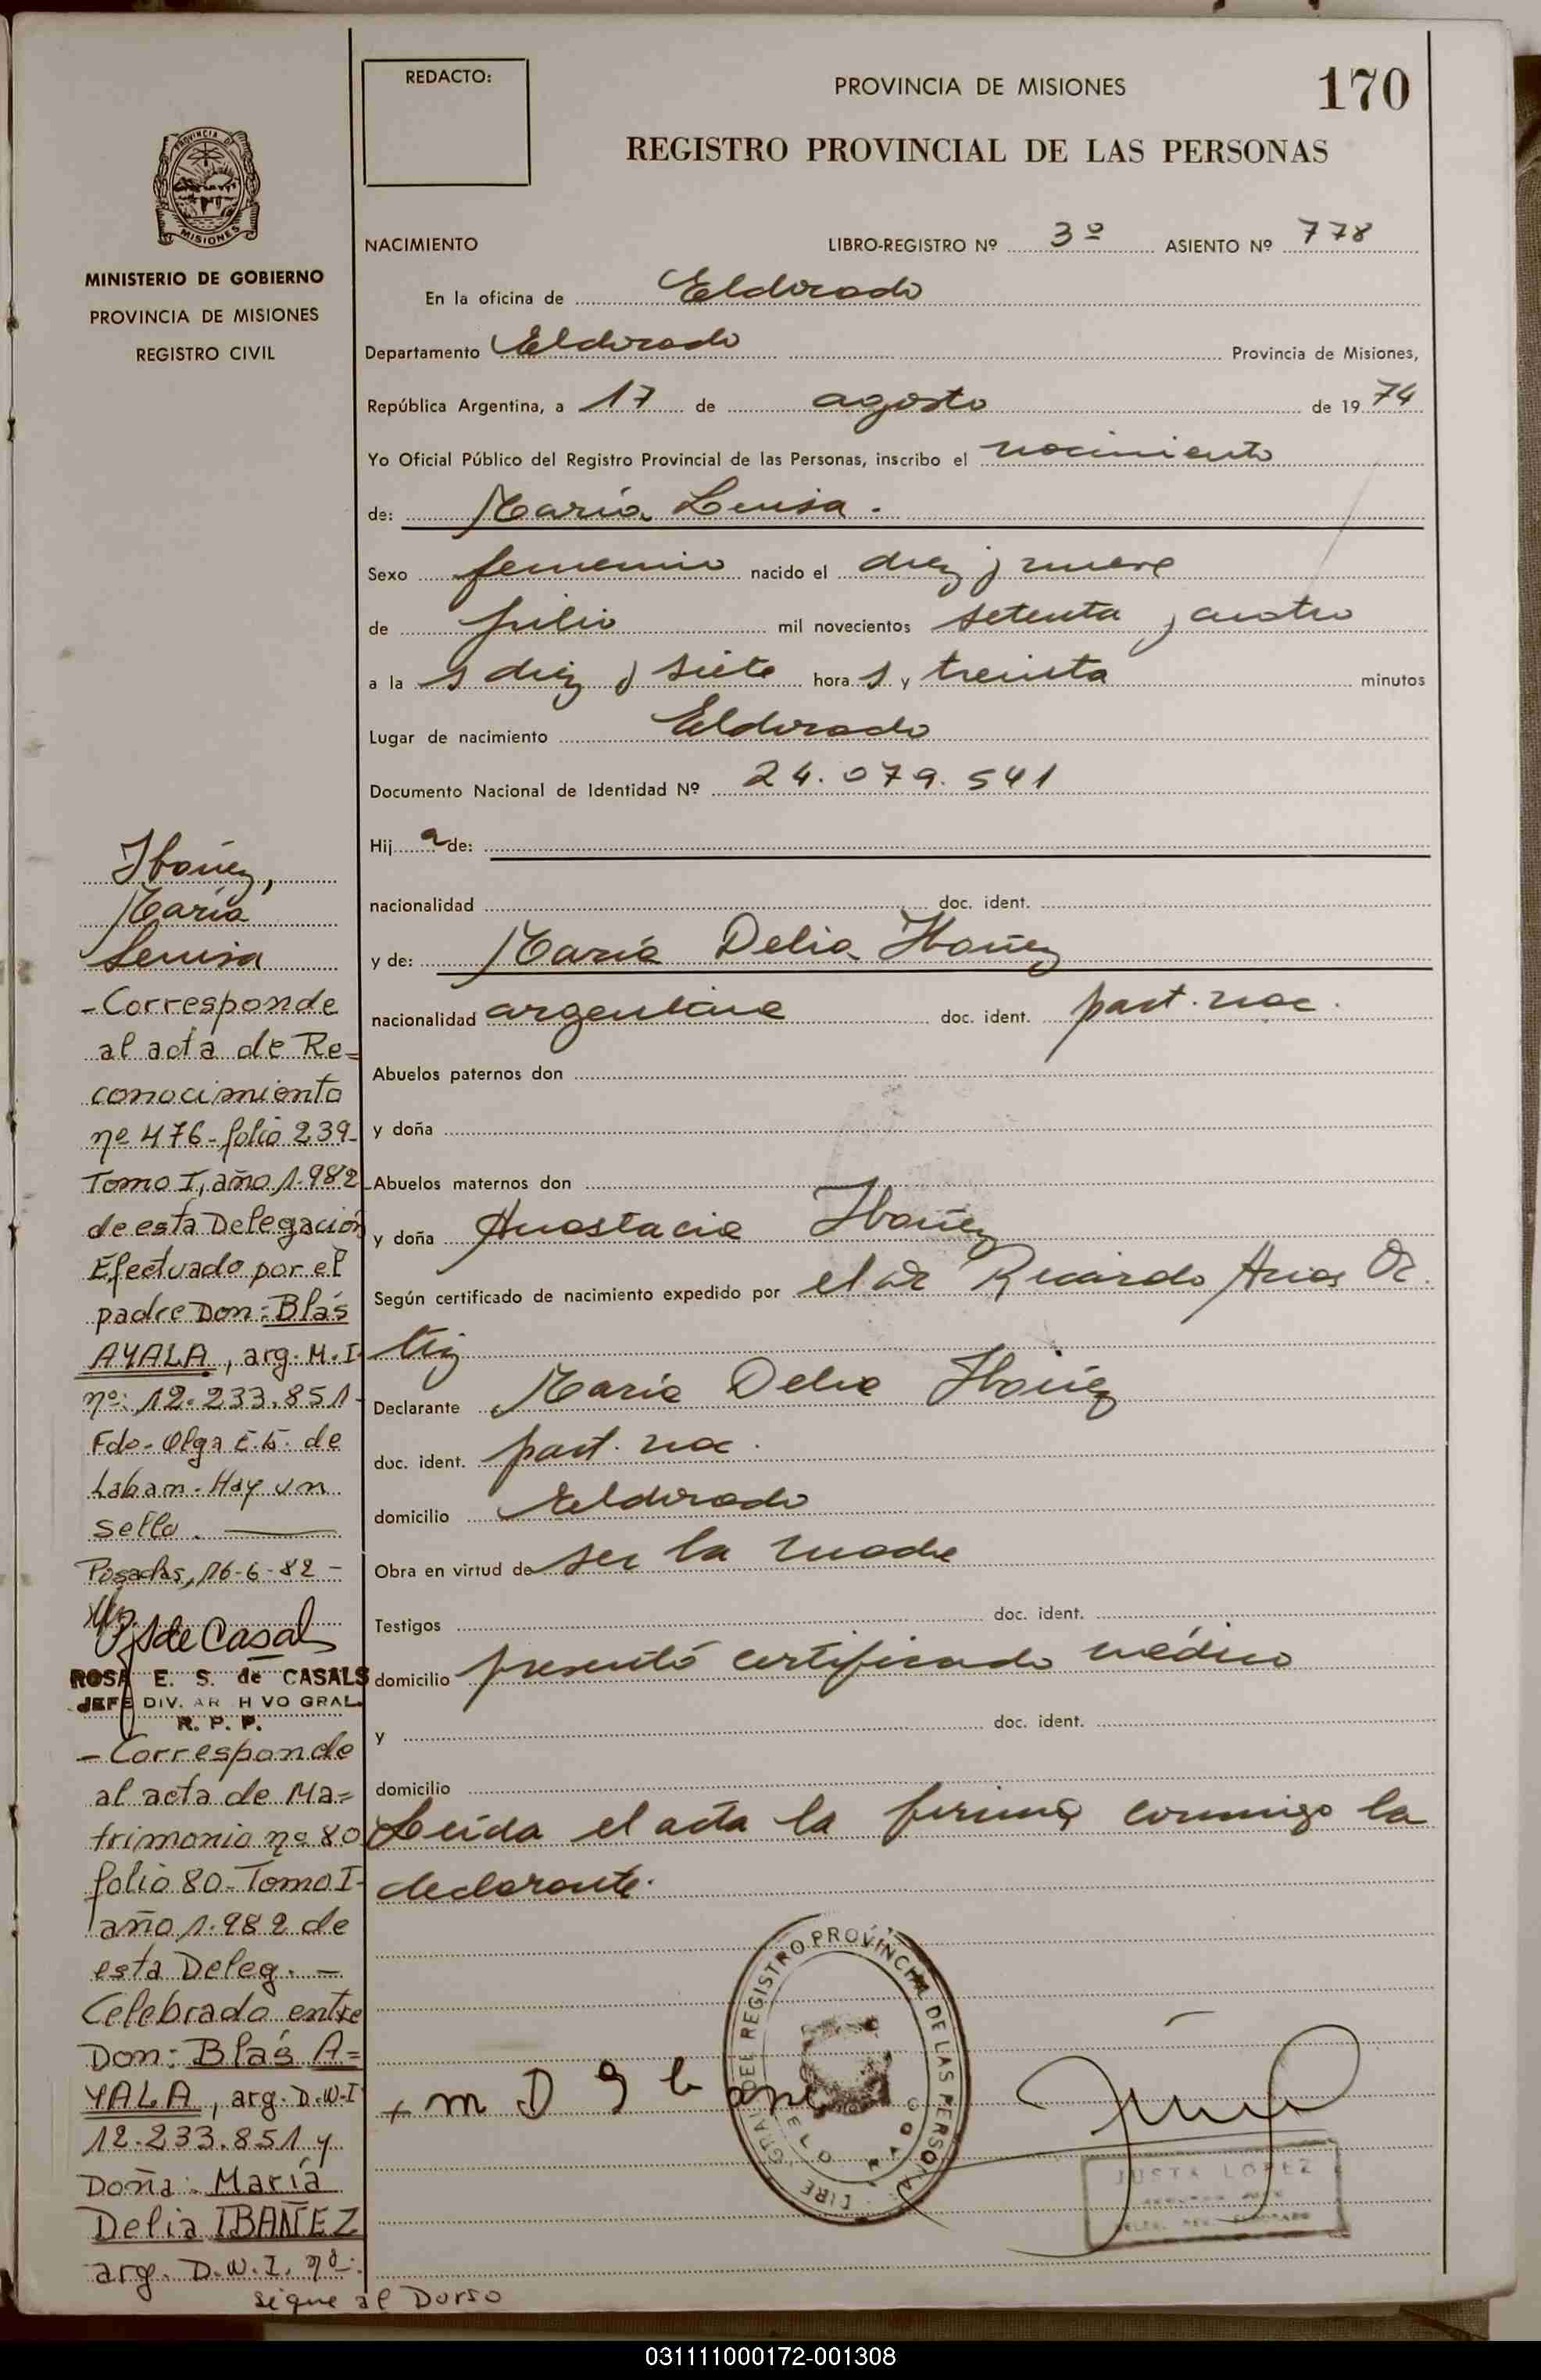 REDACTO:
PROVINCIA DE MISIONES
170
REGISTRO PROVINCIAL DE LAS PERSONAS
PROVINCIA DE
MISIONES
MINISTERIO DE GOBIERNO
PROVINCIA DE MISIONES
REGISTRO CIVIL
NACIMIENTO LIBRO-REGISTRO Nº 3º ASIENTO Nº 778
En la oficina de Eldorado
Departamento Eldorado Provincia de Misiones,
República Argentina, a 17 de agosto de 1974
Yo Oficial Público del Registro Provincial de las Personas, inscribo el nacimiento
de: María Luisa.
Sexo femenino nacido el diez y nueve
de julio mil novecientos setenta y cuatro
a la s diez y siete hora s y treinta minutos
Lugar de nacimiento Eldorado
Documento Nacional de Identidad Nº 24.079.541
Hij a de:
nacionalidad doc. ident.
y de: María Delia Ibañez
nacionalidad argentina doc. ident. part. nac.
Abuelos paternos don
y doña
Abuelos maternos don
y doña Anastacia Ibañez
Según certificado de nacimiento expedido por el dr Ricardo Arias Or
tiz
Declarante María Delia Ibañez
doc. ident. part. nac.
domicilio Eldorado
Obra en virtud de ser la madre
Testigos doc. ident.
domicilio presentó certificado médico
y doc. ident.
domicilio
Leída el acta la firma conmigo la
declarante.
Ibañez,
María
Luisa
-Corresponde
al acta de Re=
conocimiento
nº 476-folio 239-
Tomo I, año 1.982
de esta Delegación
Efectuado por el
padre Don: Blás
AYALA, arg. M.I.
nº: 12.233.851-
Fdo- Olga E. de
Laban- Hay un
sello.
Posadas, 16-6-82-
S de Casals
ROSA E. S. de CASALS
JEFE DIV. AR H VO GRAL.
R. P. P.
-Corresponde
al acta de Ma=
trimonio nº 80
folio 80-Tomo I-
año 1.982 de
esta Deleg. -
Celebrado entre
Don: Blás A=
YALA, arg. D.N.I
12.233.851 y
Doña: María
Delia IBAÑEZ
arg. D.N.I. nº:
sigue al Dorso
+ m D I b añe
DIRE GRAL DEL REGISTRO PROVINCIAL DE LAS PERSONA
ELDORADO
JUSTA LOPEZ
031111000172-001308